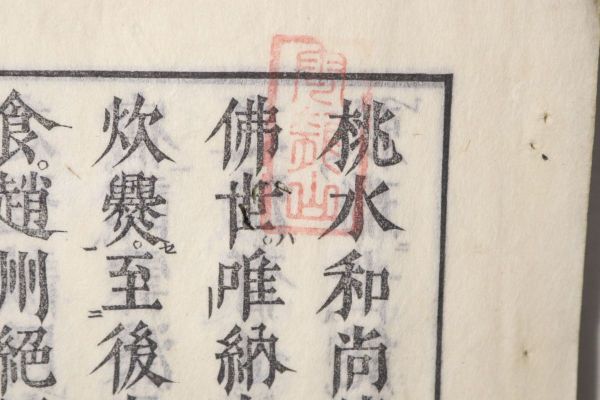 桃水和尚
佛世。唯納
炊爨。至後
食。趙州絕